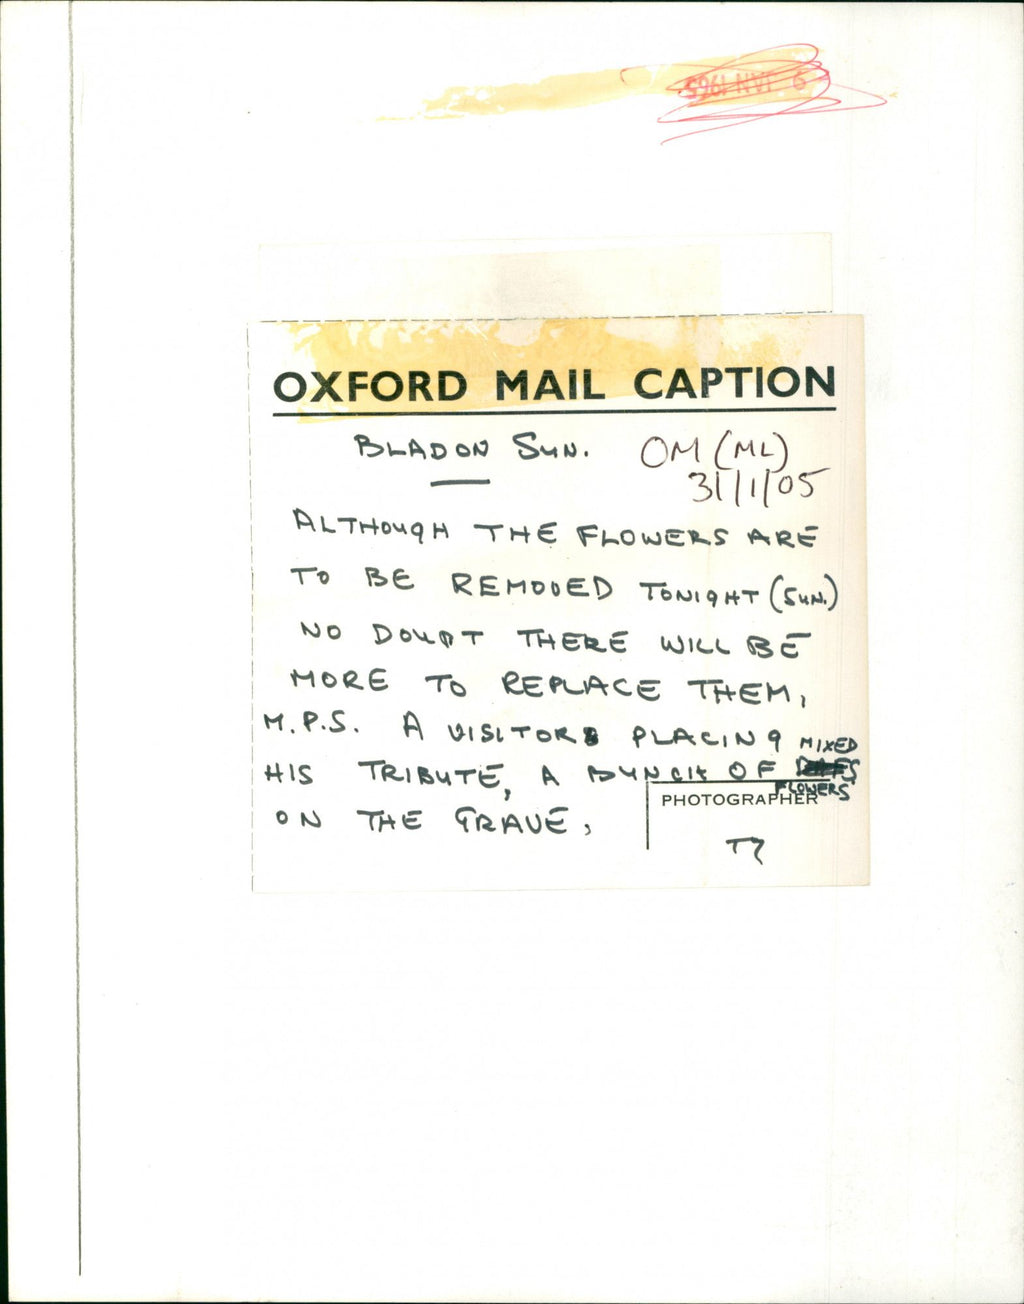 6 JAN 1965
OXFORD MAIL CAPTION
BLADON SUN. OM (ML)
31/1/05
ALTHOUGH THE FLOWERS ARE
TO BE REMOVED TONIGHT (SUN.)
NO DOUBT THERE WILL BE
MORE TO REPLACE THEM,
M.P.S. A VISITOR PLACING MIXED
HIS TRIBUTE, A BUNCH OF
FLOWERS
PHOTOGRAPHER
ON THE GRAVE,